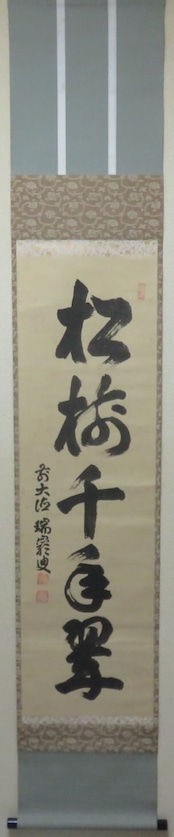 松樹千年翠
前大徳 瑞巖叟